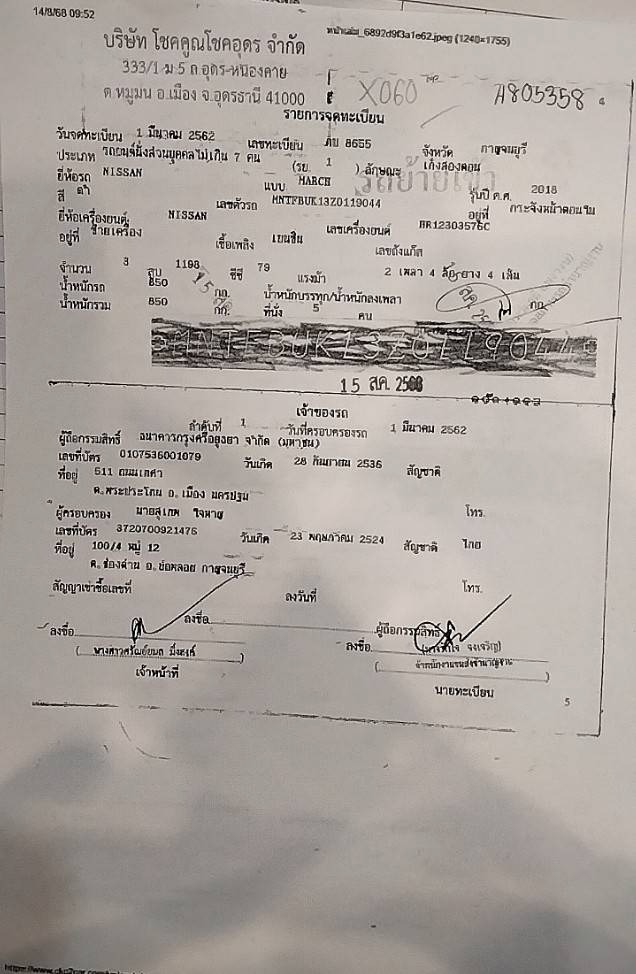 14/8/68 09:52
หน้าเล่ม_6892d9f3a1e62.jpeg (1240×1755)
บริษัท โชคคูณโชคอุดร จำกัด
333/1 ม.5 ถ.อุดร-หนองคาย
ต.หมูม่น อ.เมือง จ.อุดรธานี 41000
X060
A805358
รายการจดทะเบียน
วันจดทะเบียน 1 มีนาคม 2562 เลขทะเบียน 8655 จังหวัด กาญจนบุรี
ประเภท รถยนต์นั่งส่วนบุคคลไม่เกิน 7 คน (รย. 1 ) ลักษณะ เก๋งสองตอน
รถย้ายเข้า
ยี่ห้อรถ NISSAN แบบ MARCH รุ่นปี ค.ศ. 2018
สี ดำ เลขตัวรถ MNTFBUK13Z0119044 อยู่ที่ กระจังหน้าตอนใน
ยี่ห้อเครื่องยนต์ NISSAN เลขเครื่องยนต์ HR12303576C
อยู่ที่ ซ้ายเครื่อง เชื้อเพลิง เบนซิน เลขถังแก๊ส
จำนวน 3 สูบ 1198 ซีซี 79 แรงม้า 2 เพลา 4 ล้อ ยาง 4 เส้น
น้ำหนักรถ 850 กก. น้ำหนักบรรทุก/น้ำหนักลงเพลา กก.
น้ำหนักรวม 850 กก. ที่นั่ง 5 คน
MNTFBUK13Z0119044
15 ส.ค. 2568
เจ้าของรถ
ลำดับที่ 1 วันที่ครอบครองรถ 1 มีนาคม 2562
ผู้ถือกรรมสิทธิ์ ธนาคารกรุงศรีอยุธยา จำกัด (มหาชน)
เลขที่บัตร 0107536001079 วันเกิด 28 กันยายน 2536 สัญชาติ
ที่อยู่ 511 ถนนเพศา
ต.พระประโทน อ.เมือง นครปฐม
ผู้ครอบครอง นายสุเทพ ใจหาญ โทร.
เลขที่บัตร 3720700921476 วันเกิด 23 พฤษภาคม 2524 สัญชาติ ไทย
ที่อยู่ 100/4 หมู่ 12
ต.ช่องด่าน อ.บ่อพลอย กาญจนบุรี โทร.
สัญญาเช่าซื้อเลขที่ ลงวันที่
ลงชื่อ ผู้ถือกรรมสิทธิ์
ลงชื่อ ลงชื่อ
เจ้าหน้าที่
นายทะเบียน
5